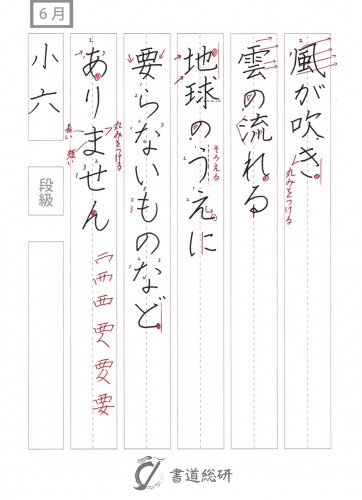 風が吹き
雲の流れる
地球のうえに
要らないものなど
ありません
6月
小六
段級
丸みをつける
そろえる
丸みをつける
長い
短い
書道総研